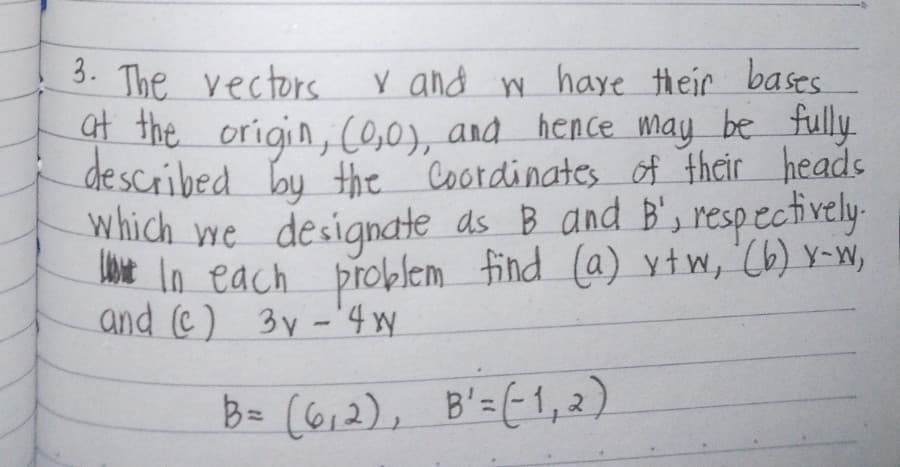 3. The vectors v and w have their bases
at the origin, (0,0), and hence may be fully
described by the Coordinates of their heads
which we designate as B and B', respectively.
In each problem find (a) v+w, (b) v-w,
and (c) 3v - 4w
B= (6,2), B'=(-1,2)